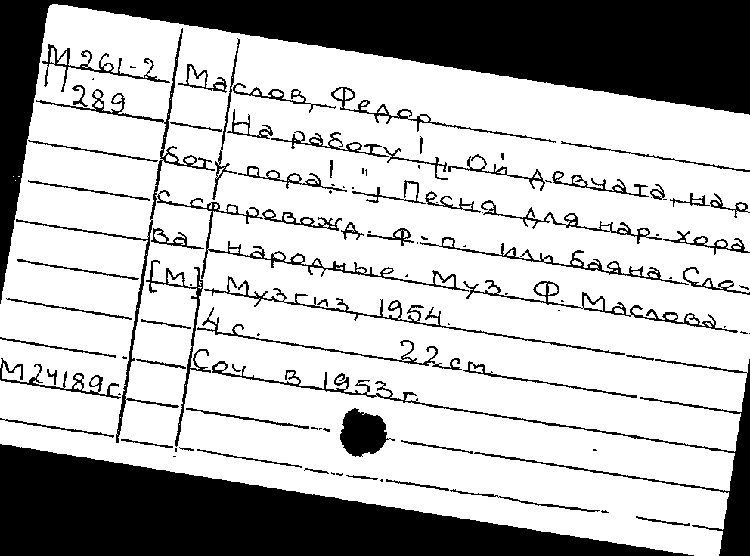 М 261-2
289
Маслов, Федор
На работу! ["Ой девчата, на ра-
боту пора!.."] Песня для нар. хора
с сопровожд. ф-п. или баяна. Сло-
ва народные. Муз. Ф. Маслова.
[М.], Музгиз, 1954.
4 с. 22 см.
Соч. в 1953 г.
М24189с